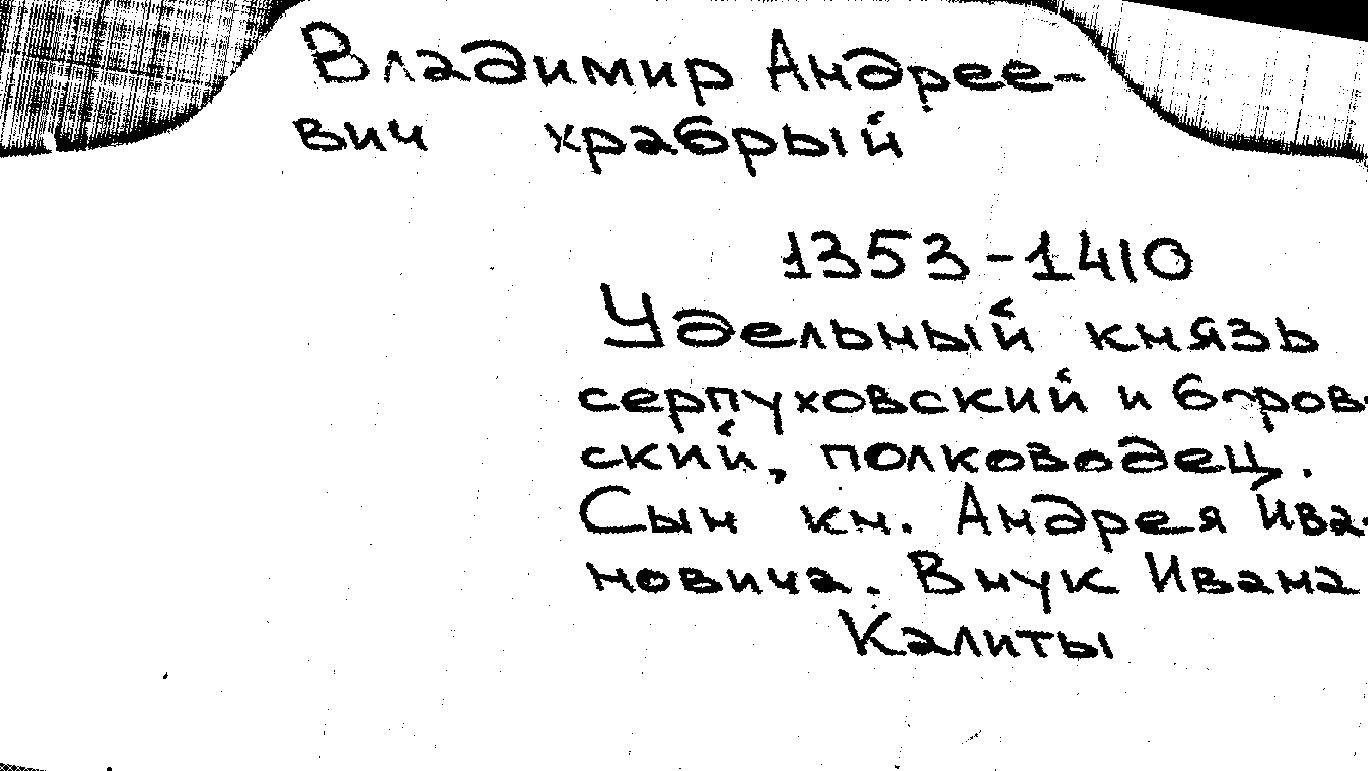 Владимир Андрее-
вич храбрый
1353-1410
Удельный князь
серпуховский и боров-
ский, полководец.
Сын кн. Андрея Ива-
новича. Внук Ивана
Калиты